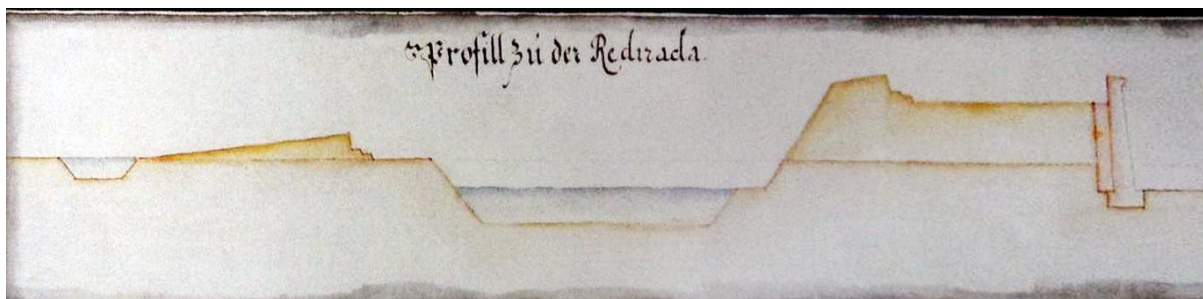 Profill zú der Redirada.